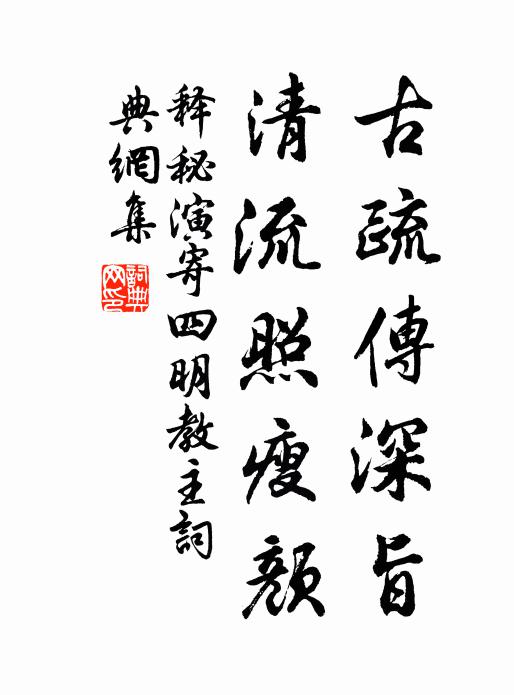 古疏傳深旨
清流照瘦顏
释秘演寄四明教主詞
典網集
詞典網印